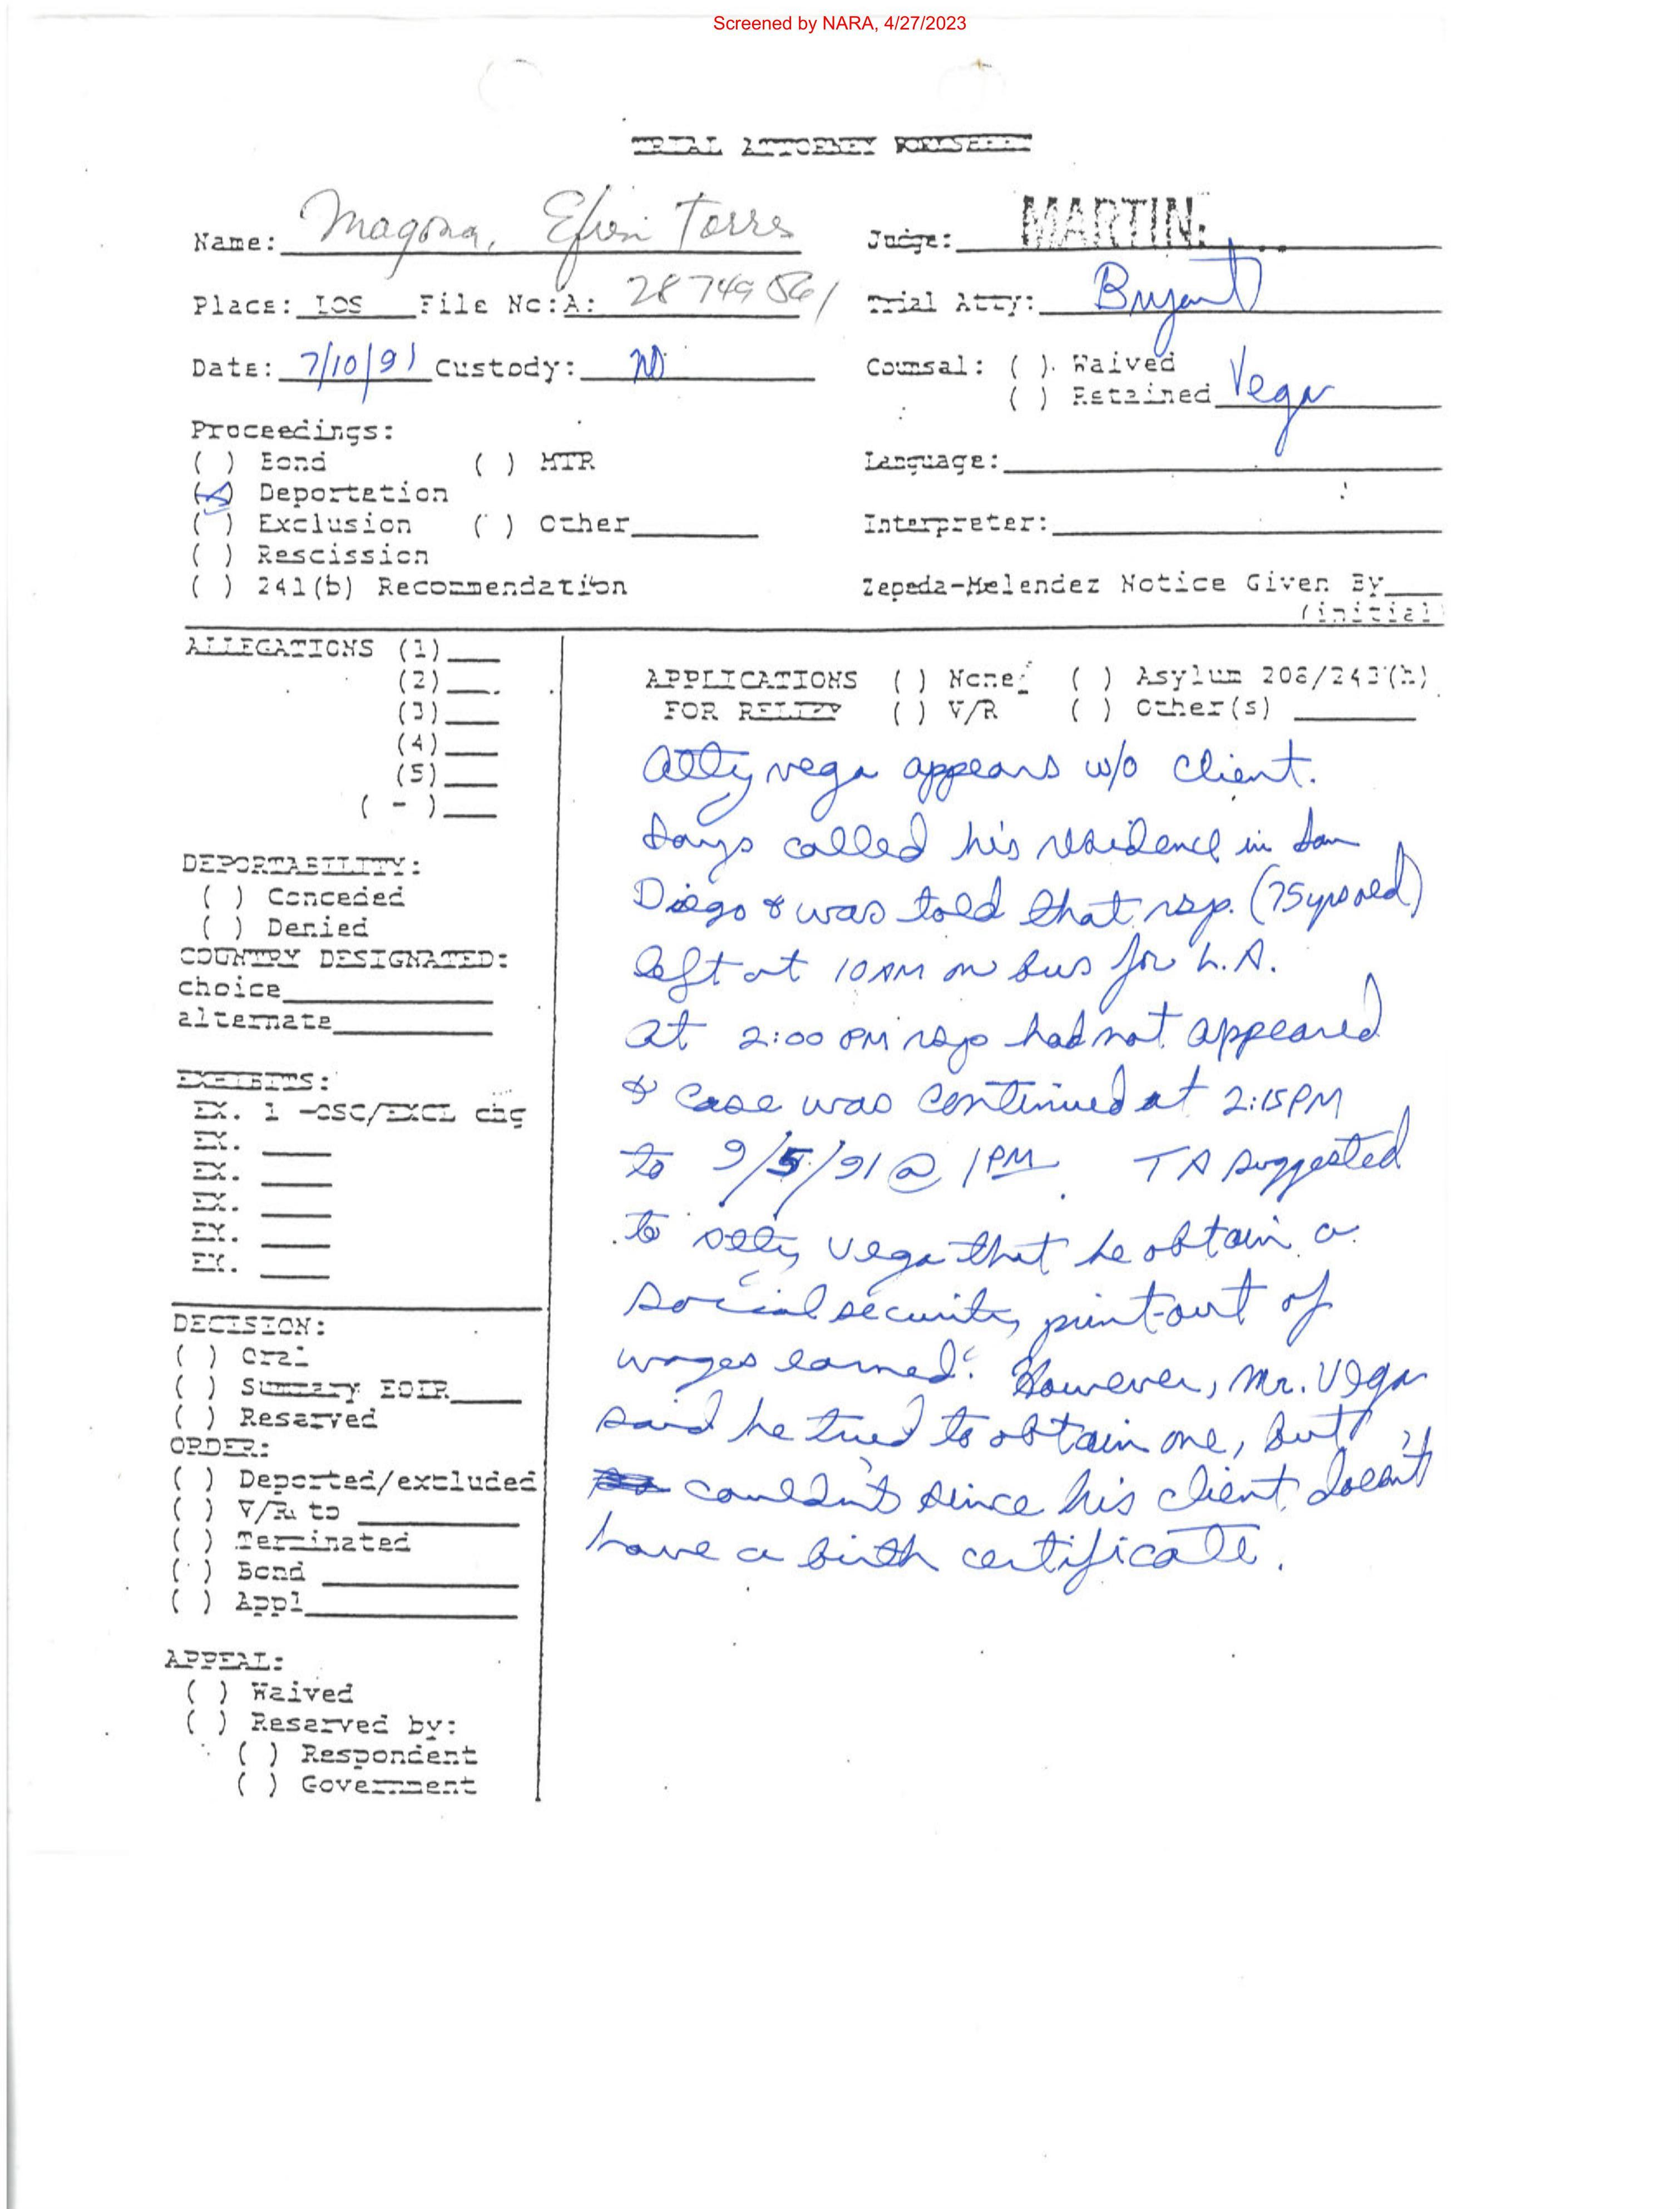 Screened by NARA, 4/27/2023
TRIAL ATTORNEY WORKSHEET
Name: Magona, Efren Torres
Judge: MARTIN
Place: LOS File No:A: 28 749 561
Trial Atty: Bryant
Date: 7/10/91 Custody: NO
Counsal: ( ) Waived
( ) Retained Vega
Proceedings:
( ) Bond ( ) MTR
(X) Deportation
( ) Exclusion ( ) Other
( ) Rescission
( ) 241(b) Recommendation
Language:
Interpreter:
Zepeda-Melendez Notice Given By
(initial)
ALLEGATIONS (1)
(2)
(3)
(4)
(5)
( - )
DEPORTABILITY:
( ) Conceded
( ) Denied
COUNTRY DESIGNATED:
choice
alternate
EXHIBITS:
EX. 1 -OSC/EXCL chg
EX.
EX.
EX.
EX.
EX.
DECISION:
( ) Oral
( ) Summary EOIR
( ) Reserved
ORDER:
( ) Deported/excluded
( ) V/R to
( ) Terminated
( ) Bond
( ) Appl
APPEAL:
( ) Waived
( ) Reserved by:
( ) Respondent
( ) Government
APPLICATIONS ( ) None ( ) Asylum 208/243(h)
FOR RELIEF ( ) V/R ( ) Other(s)
Atty Vega appears w/o client.
Says called his residence in San
Diego & was told that rsp. (75 yrs old)
left at 10 AM on bus for L.A.
At 2:00 PM rsp had not appeared
& case was continued at 2:15 PM
to 9/5/91 @ 1PM. TA suggested
to atty Vega that he obtain a
social security print-out of
wages earned. However, Mr. Vega
said he tried to obtain one, but
couldn't since his client doesn't
have a birth certificate.